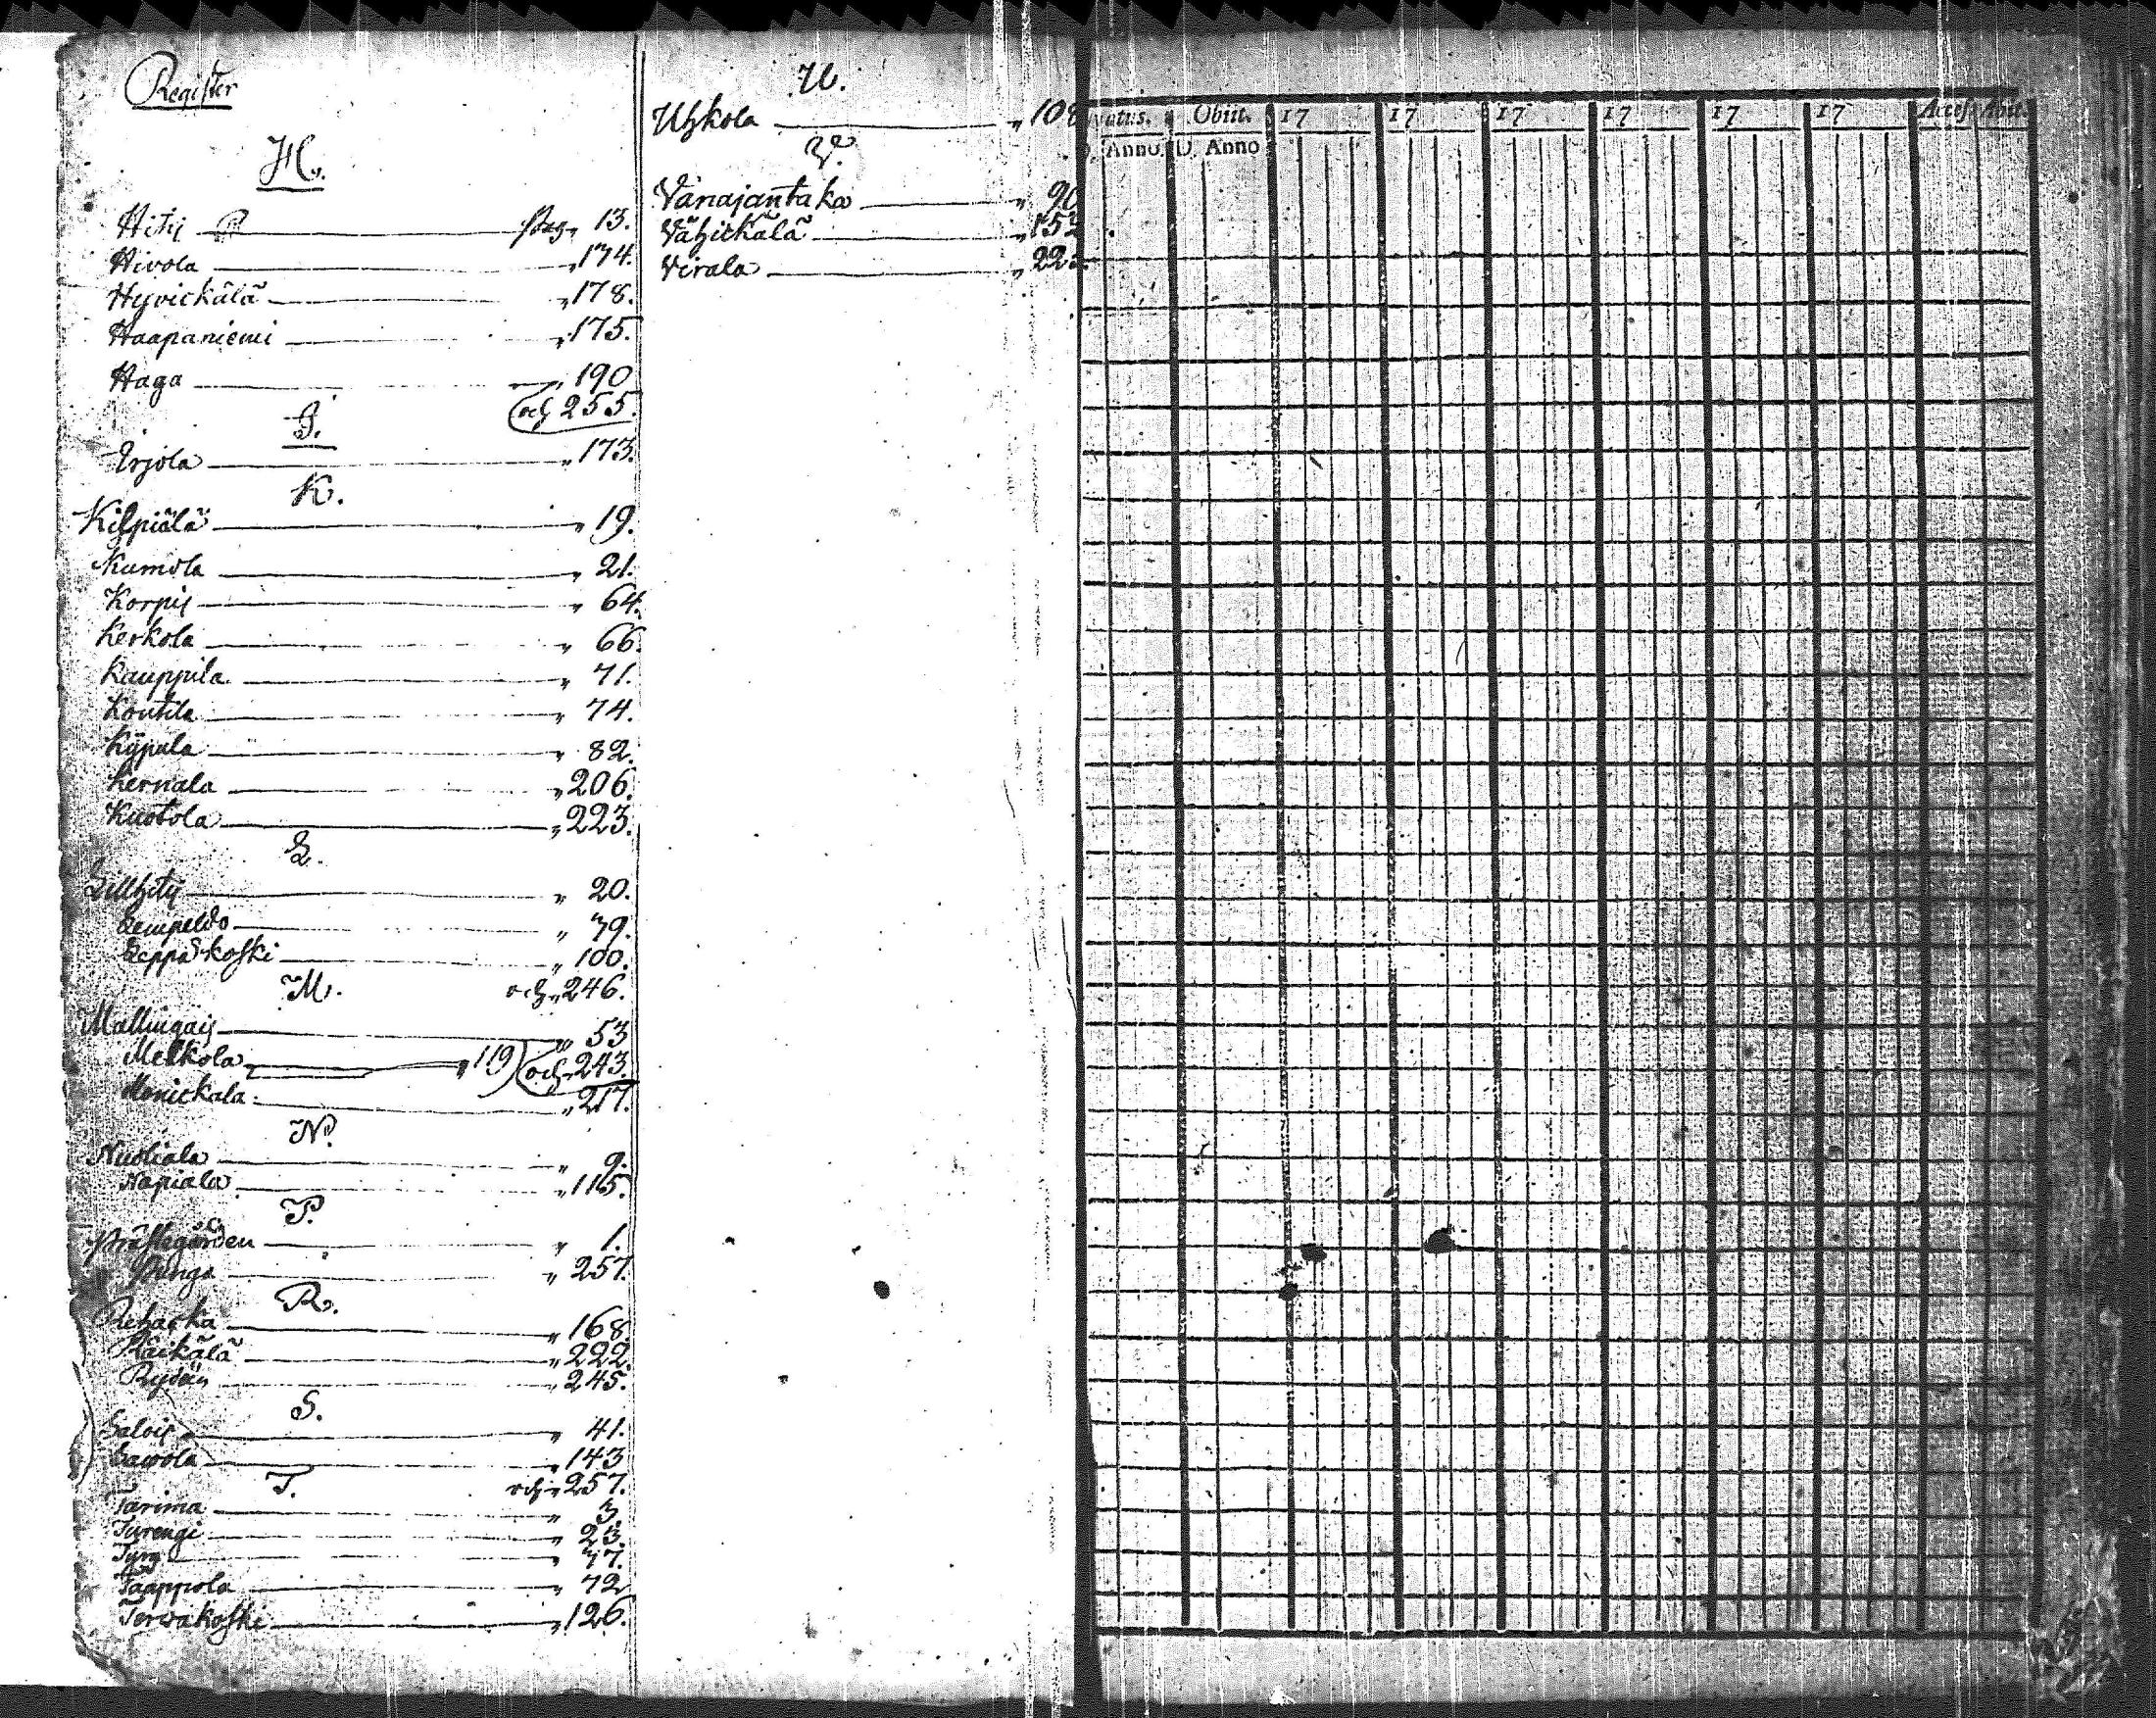 Register
H.
Hitis Pag. 13.
Hivola " 174.
Hyvickälä " 178.
Haapaniemi " 175.
Haga " 190
och 255.
I.
Irjola " 173.
K.
Kilpiälä " 19.
Kumola " 21.
Korpis " 64.
Kerkola " 66.
Kauppila " 71.
Koutila " 74.
Kijpula " 82.
Kernala " 206.
Kuotola " 223.
L.
" 20.
Lempeldo " 79.
Leppäkoski " 100.
och " 246.
M.
Mallingais " 53
Melkola " 119 och 243.
Monickala " 217.
N.
Nuoliala " 9.
Napiala " 115.
P.
Prästegården " 1.
Punga " 257.
R.
Rehacka " 168
Räikälä " 222.
" 245.
S.
Salois " 41.
Sawola " 143
och " 257.
T.
Tarima " 3.
Turengi " 23.
" 77.
Taappola " 72
Terwakoski " 126.
U.
Uhkola " 108
V.
Vanajantaka " 90
Vähickälä " 152
Virala " 22
natus. Obiit. 17 17 17 17 17 17 Access Abiit.
Anno. D. Anno